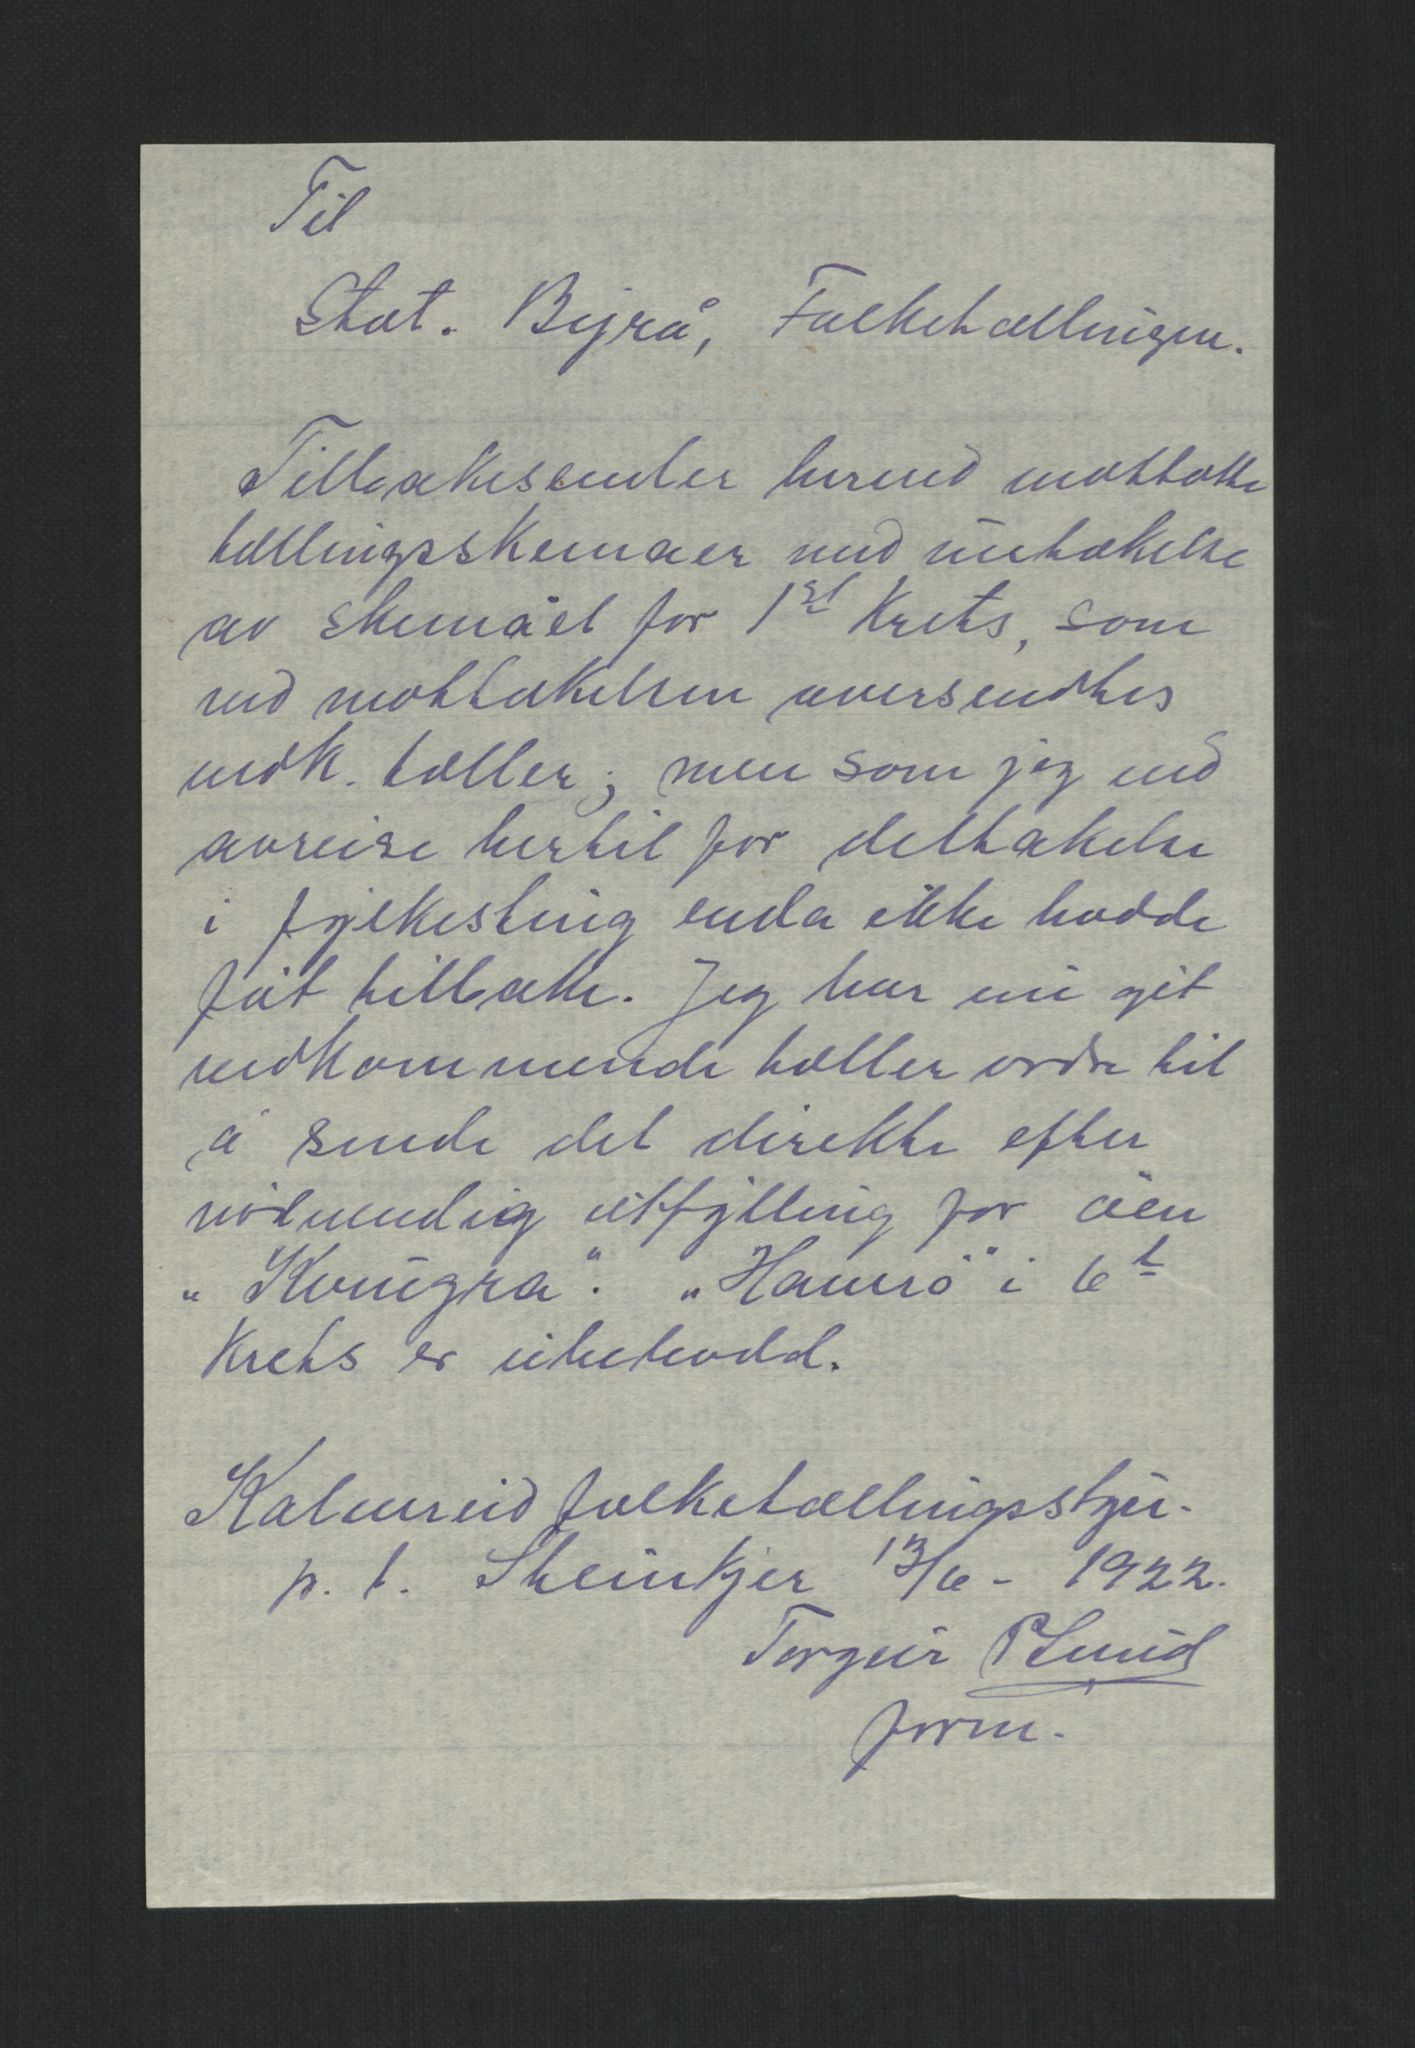 Til
Stat. Byrå, Folketællingen.
Tilbakesender herved mottatte
tællingsskemaer med untakelse
av skemaet for 1st Krets, som
ved mottakelsen oversendtes
vedk. tæller; men som jeg ved
avreise hertil for deltakelse
i fylkesting enda ikke hadde
fåt tilbake. Jeg har nu git
vedkommende tæller ordre til
å sende det direkte efter
nödvendig utfylling for öen
„Kvingra“. „Hamrö“ i 6t
Krets er ubebodd.
Kolvereid folketællingsstyre.
p. t. Steinkjer 13/6 - 1922.
Torgeir P Lund
form.